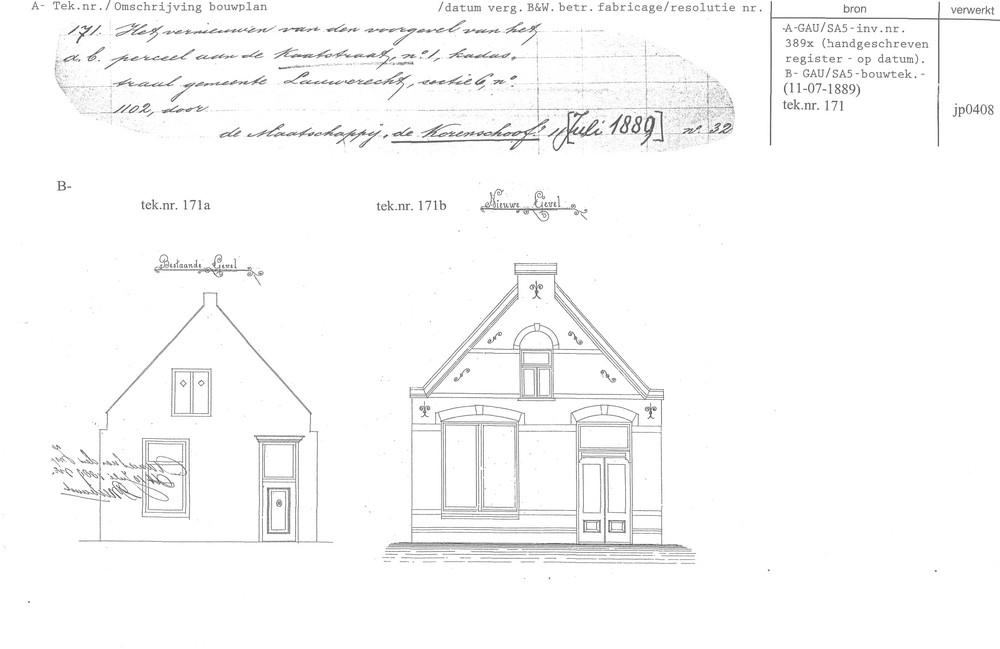 A- Tek.nr./Omschrijving bouwplan /datum verg. B&W. betr. fabricage/resolutie nr. bron verwerkt
171. Het vernieuwen van den voorgevel van het
a. b. perceel aan de Kaatstraat, n° 1, kadas-
traal gemeente Lauwerecht, sectie C, n°.
1102, door
de Maatschappij "de Korenschoof." 11 [Juli 1889] n°. 32
-A-GAU/SA5-inv.nr.
389x (handgeschreven
register - op datum).
B- GAU/SA5-bouwtek.-
(11-07-1889)
tek.nr. 171
jp0408
B-
tek.nr. 171a
tek.nr. 171b
Nieuwe Gevel
Bestaande Gevel